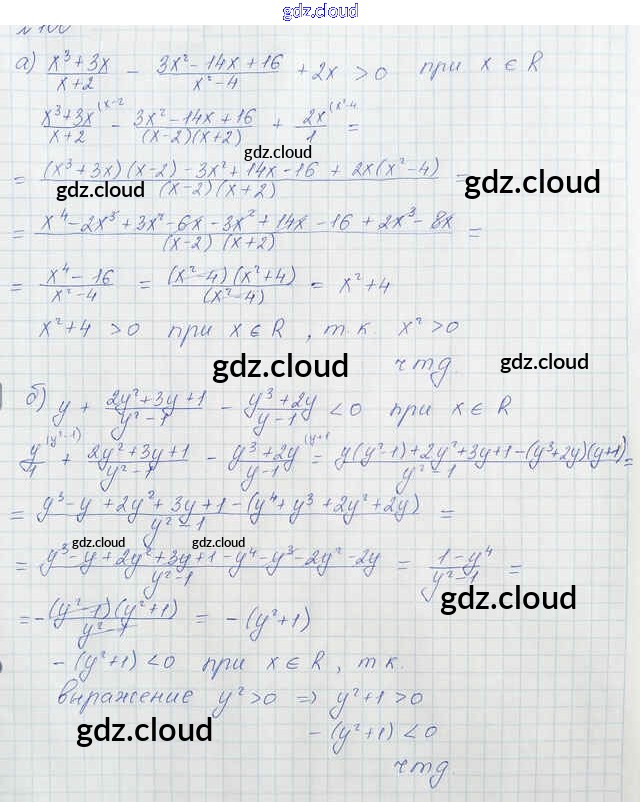 gdz.cloud
№100
а) (x³+3x)/(x+2) - (3x²-14x+16)/(x²-4) + 2x > 0 при x ∈ R
(x³+3x)/(x+2) (x-2 - (3x²-14x+16)/((x-2)(x+2)) + 2x/1 (x²-4 =
gdz.cloud
= ((x³+3x)(x-2) - 3x²+14x-16 + 2x(x²-4))/((x-2)(x+2)) =
gdz.cloud gdz.cloud
= (x⁴-2x³+3x²-6x-3x²+14x-16+2x³-8x)/((x-2)(x+2)) =
= (x⁴-16)/(x²-4) = ((x²-4)(x²+4))/(x²-4) = x²+4
x²+4 > 0 при x ∈ R, т.к. x² > 0
gdz.cloud чтд. gdz.cloud
б) y + (2y²+3y+1)/(y²-1) - (y³+2y)/(y-1) < 0 при x ∈ R
y/1 (y²-1) + (2y²+3y+1)/(y²-1) - (y³+2y)/(y-1) (y+1 = (y(y²-1)+2y²+3y+1-(y³+2y)(y+1))/(y²-1) =
= (y³-y+2y²+3y+1-(y⁴+y³+2y²+2y))/(y²-1) =
gdz.cloud gdz.cloud
= (y³-y+2y²+3y+1-y⁴-y³-2y²-2y)/(y²-1) = (1-y⁴)/(y²-1) =
gdz.cloud
= -((y²-1)(y²+1))/(y²-1) = -(y²+1)
-(y²+1) < 0 при x ∈ R, т.к.
выражение y² > 0 ⇒ y²+1 > 0
gdz.cloud -(y²+1) < 0
чтд.